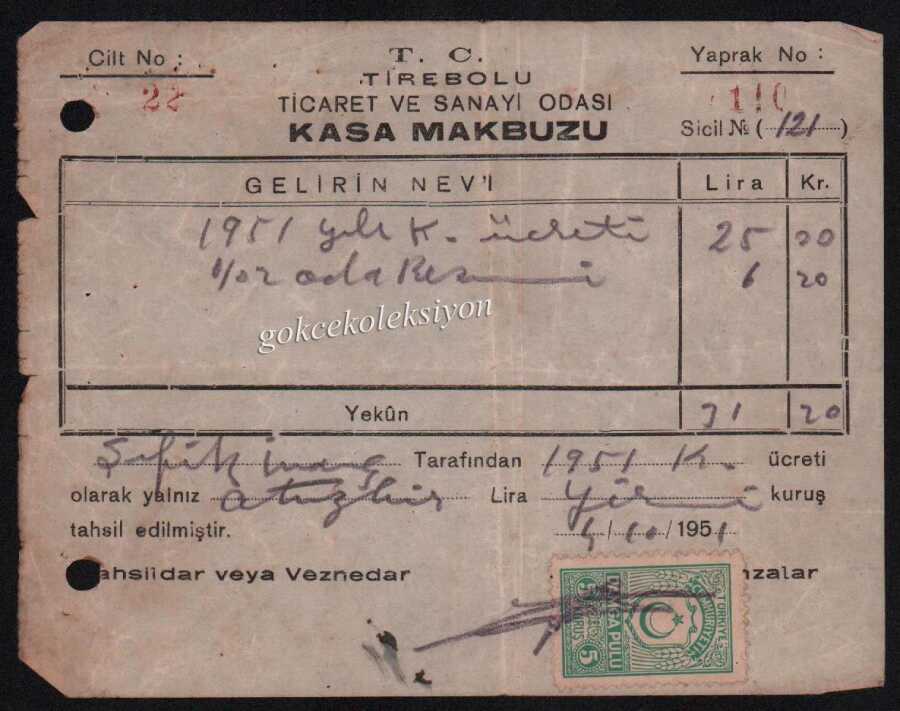 Cilt No :
22
T. C.
TİREBOLU
TİCARET VE SANAYİ ODASI
KASA MAKBUZU
Yaprak No :
110
Sicil № ( 121 )
GELİRİN NEV'İ Lira Kr.
1951 yılı K. ücreti 25 00
oda Resmi 6 20
gokcekoleksiyon
Yekûn 31 20
Şefik Tarafından 1951 K. ücreti
olarak yalnız otuzbir Lira Yirmi kuruş
tahsil edilmiştir. /10/1951
ahsildar veya Veznedar mzalar
TÜRKİYE CUMHURİYETİ
DAMGA PULU
5 KURUŞ 5